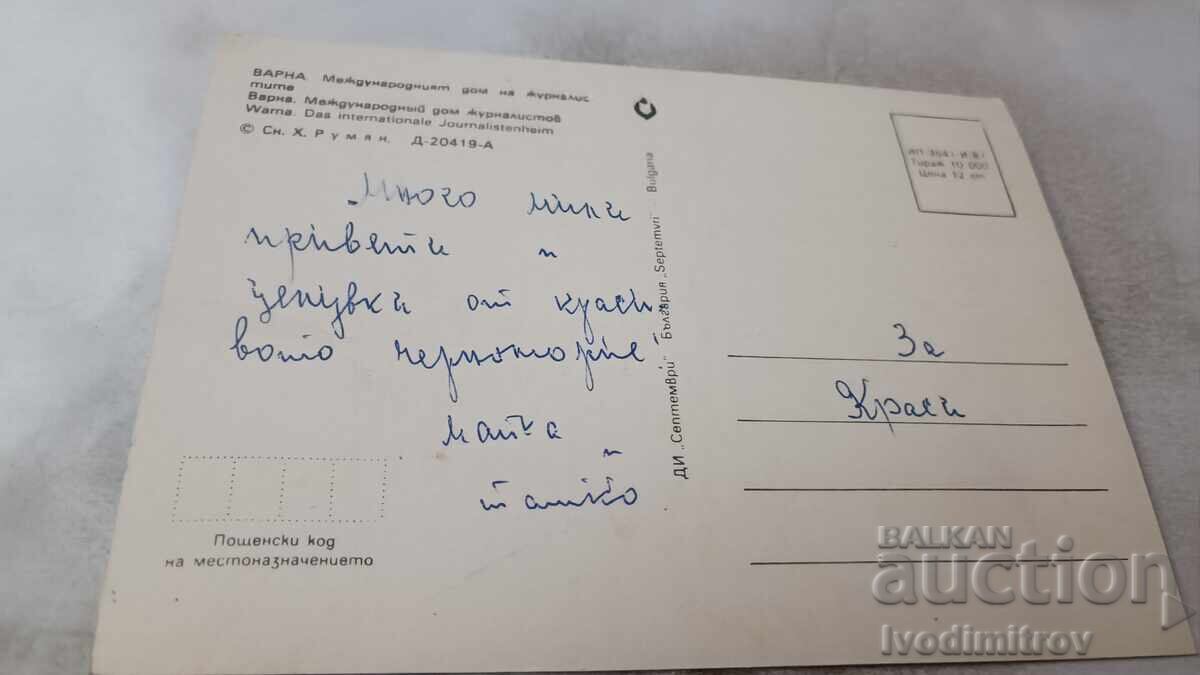 ВАРНА. Международният дом на журналис
тите
Варна. Международный дом журналистов
Warna. Das internationale Journalistenheim
© Сн. Х. Румян. Д-20419-А
Много мили
привети и
целувки от краси
вото черноморие
майка
и
татко
Пощенски код
на местоназначението
ДИ „Септември" България „Septemvri" Bulgaria
Тираж 10 000
Цена 12 ст.
За
Краси
BALKAN
auction
Ivodimitrov